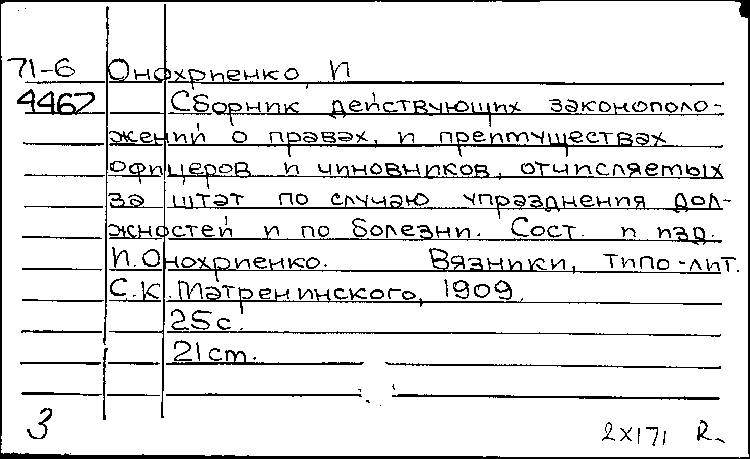 71-6 Онохриенко, И
4467 Сборник действующих законополо-
жений о правах, и преимуществах
офицеров и чиновников, отчисляемых
за штат по случаю упразднения дол-
жностей и по болезни. Сост. и изд.
И. Онохриенко. Вязники, типо-лит.
С.К. Матренинского, 1909.
25с.
21cm.
3 2X171 R.